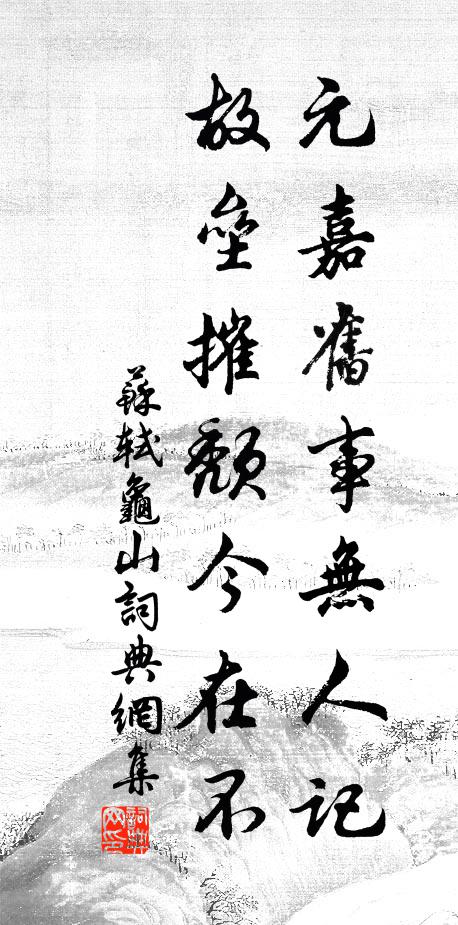 元嘉舊事無人記
故壘摧頹今在不
蘇軾龜山詞典網集